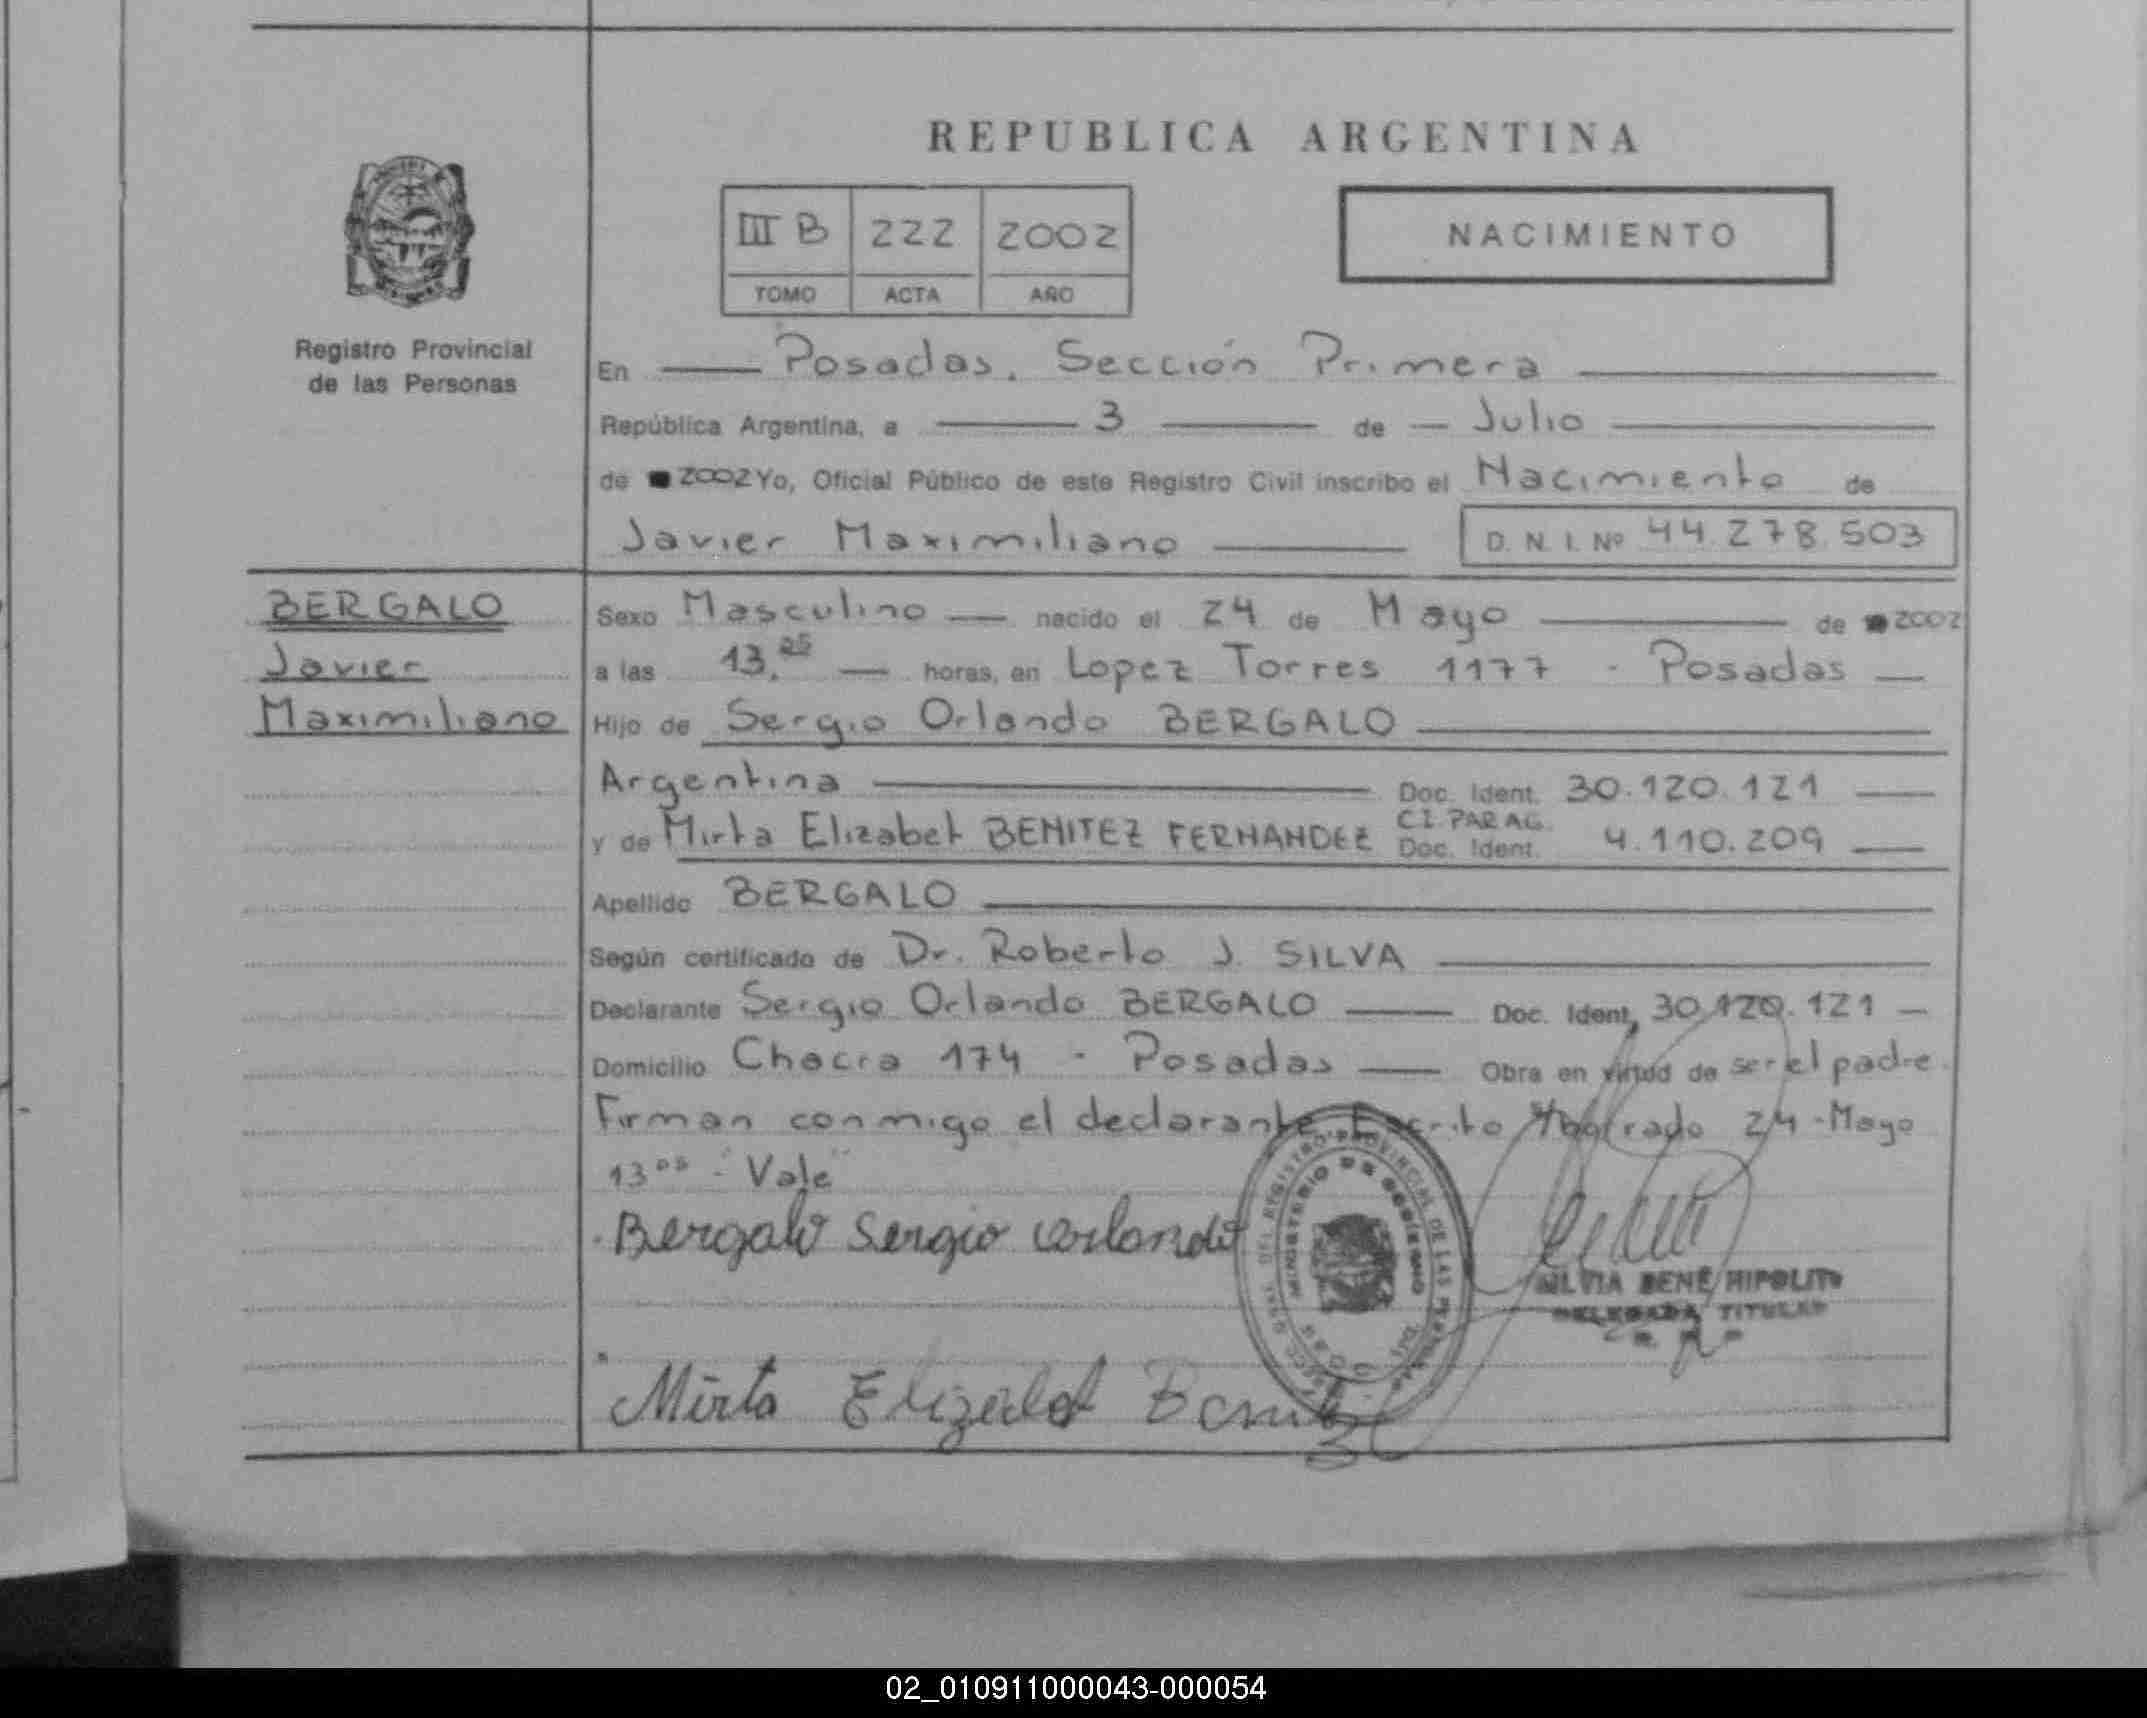 REPUBLICA ARGENTINA
III B 222 2002
TOMO ACTA AÑO
NACIMIENTO
Registro Provincial
de las Personas
En Posadas. Sección Primera
República Argentina, a 3 de Julio
de 2002 Yo, Oficial Público de este Registro Civil inscribo el Nacimiento de
Javier Maximiliano D. N. I. Nº 44.278.503
BERGALO
Javier
Maximiliano
Sexo Masculino nacido el 24 de Mayo de 2002
a las 13. horas, en Lopez Torres 1177 - Posadas
Hijo de Sergio Orlando BERGALO
Argentina Doc. Ident. 30.120.121
y de Mirta Elizabet BENITEZ FERNANDEZ C.I. PARAG. Doc. Ident. 4.110.209
Apellido BERGALO
Según certificado de Dr. Roberto J. SILVA
Declarante Sergio Orlando BERGALO Doc. Ident. 30.120.121
Domicilio Chacra 174 - Posadas Obra en virtud de ser el padre.
Firman conmigo el declarante Escrito 24 - Mayo
13⁰⁵ - "Vale"
Bergalo Sergio Orlando
REGISTRO PROVINCIAL DE LAS
MINISTERIO DE GOBIERNO
SILVIA HIPOLITO
DELEGADA TITULAR
Mirta Elizabet Benitez
02_010911000043-000054